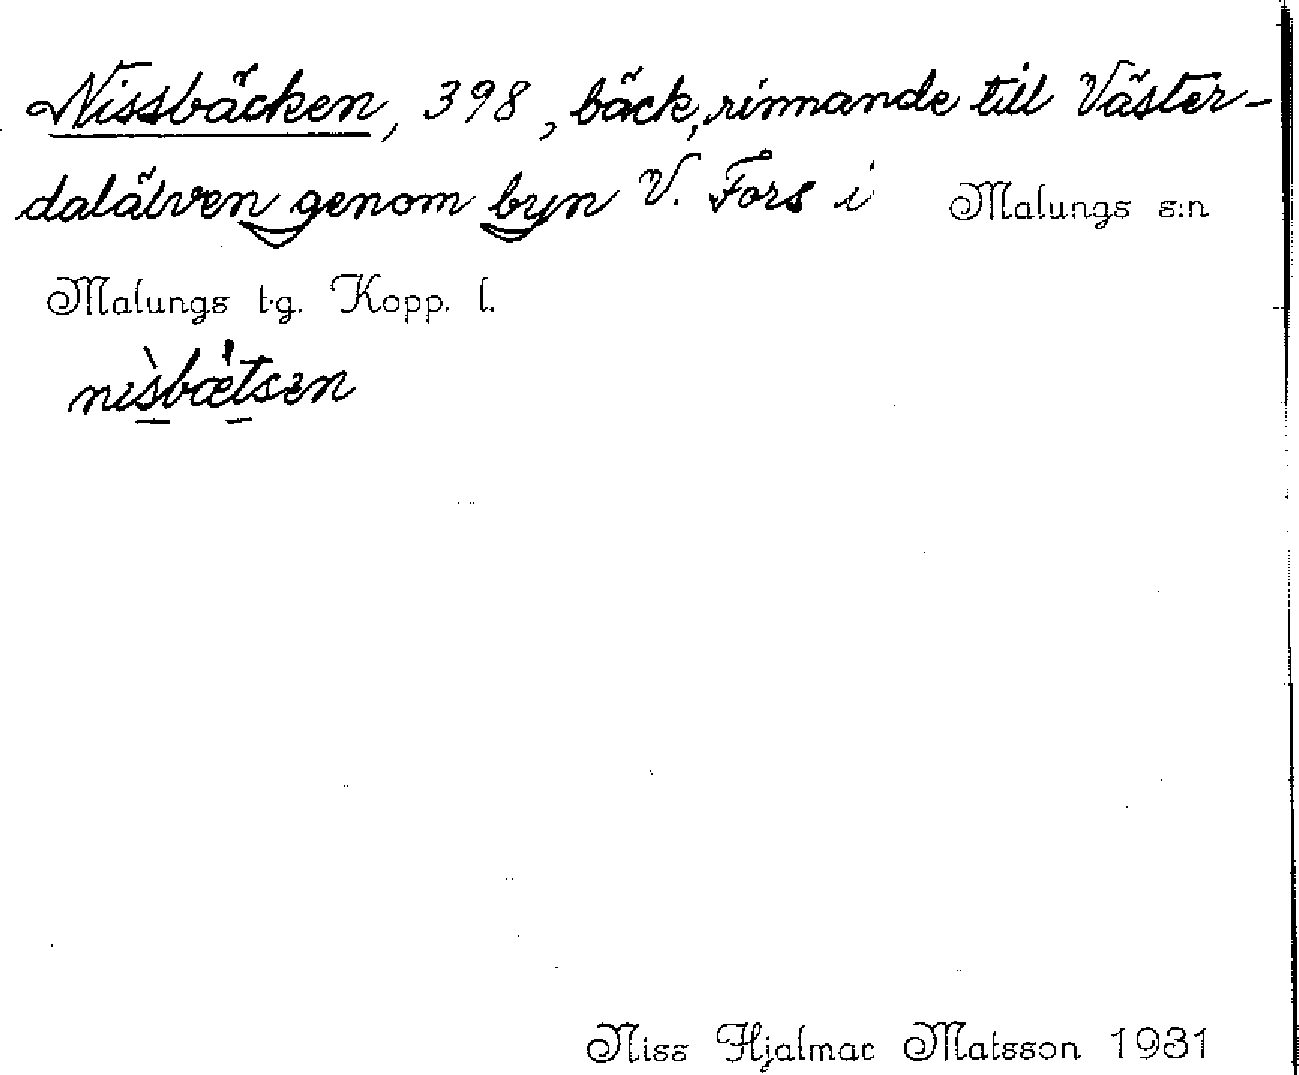 Nissbäcken, 398, bäck, rinnande till Väster-
dalälven genom byn V. Fors i Malungs s:n
Malungs t.g. Kopp. l.
nìsbǽtsen
Niss Hjalmar Matsson 1931